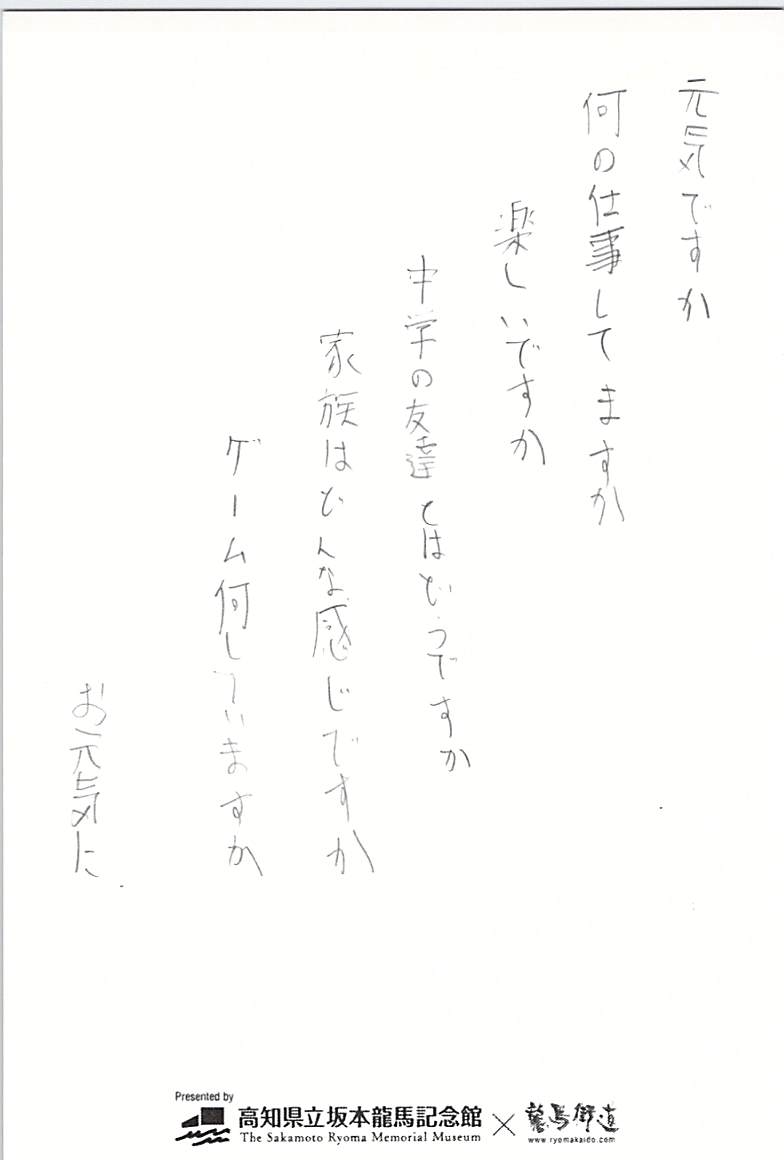 元気ですか
何の仕事してますか
楽しいですか
中学の友達とはどうですか
家族はどんな感じですか
ゲーム何していますか
お元気に
Presented by
高知県立坂本龍馬記念館
The Sakamoto Ryoma Memorial Museum
×
龍馬街道
www.ryomakaido.com